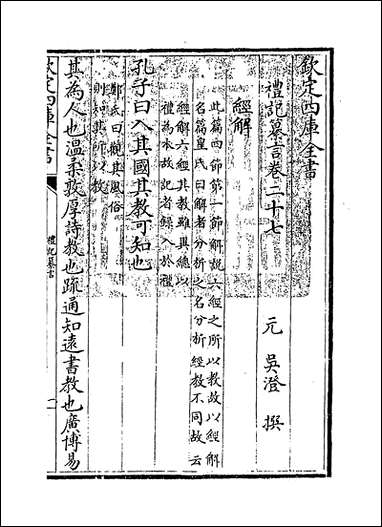 欽定四庫全書
禮記纂言卷二十七
元 吳澄 撰
經解
此篇西節第一節解說六經之所以教故以經解
名篇皇氏曰解者分析之名分析經教不同故云
經解六經其教雖異總以
禮為本故記者録入於禮
孔子曰入其國其教可知也
鄭氏曰觀其風俗
則知其所以教
其為人也溫柔敦厚詩教也疏通知遠書教也廣博易
欽定四庫全書
禮記纂言
一